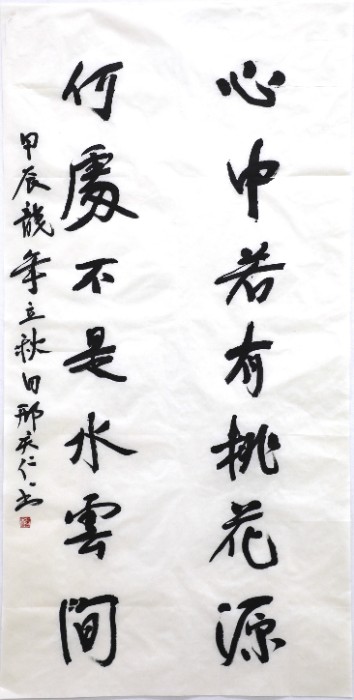 心中若有桃花源
何處不是水雲間
甲辰龍年立秋日邢庆仁书